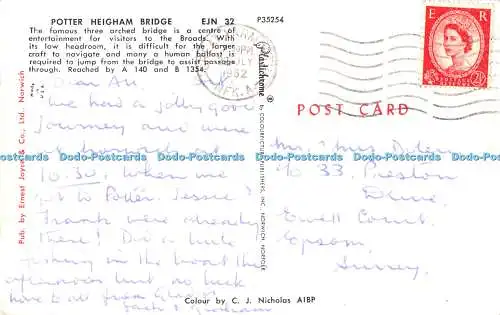 POTTER HEIGHAM BRIDGE EJN 32
The famous three arched bridge is a centre of
entertainment for visitors to the Broads. With
its low headroom, it is difficult for the larger
craft to navigate and many a human ballast is
required to jump from the bridge to assist passage
through. Reached by A 140 and B 1354.
P35254
Plastichrome ®
by COLOURPICTURE PUBLISHERS, INC. NORWICH, NORFOLK
Pub. by Ernest Joyce & Co., Ltd. Norwich
MADE IN U.S.A.
JULY
1962
NFK.
E R
POSTAGE REVENUE
2½D
POST CARD
Dear All
We had a jolly good
journey and were
at
10.30, when we
got to Potter. Jessie &
Frank were already
there! Did a little
fishing in the boat this
afternoon but no luck
love to all from Gladys
Jack & Graham
Mr. & Mrs.
33, Preston
Drive,
Ewell Court,
Epsom,
Surrey.
Colour by C. J. Nicholas AIBP
Dodo-Postcards.com Dodo-Postcards.com Dodo-Postcards.com Dodo-Postcards.com
Dodo-Postcards.com Dodo-Postcards.com Dodo-Postcards.com Dodo-Postcards.com